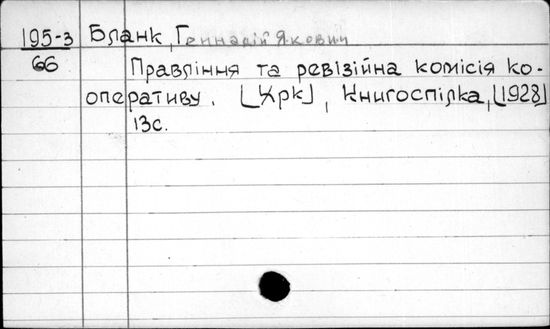 195-3 Бланк, Геннадій Якович
66
Правління та ревізійна комісія ко-
оперативу. [Хрк], Книгоспілка, [1928]
13с.